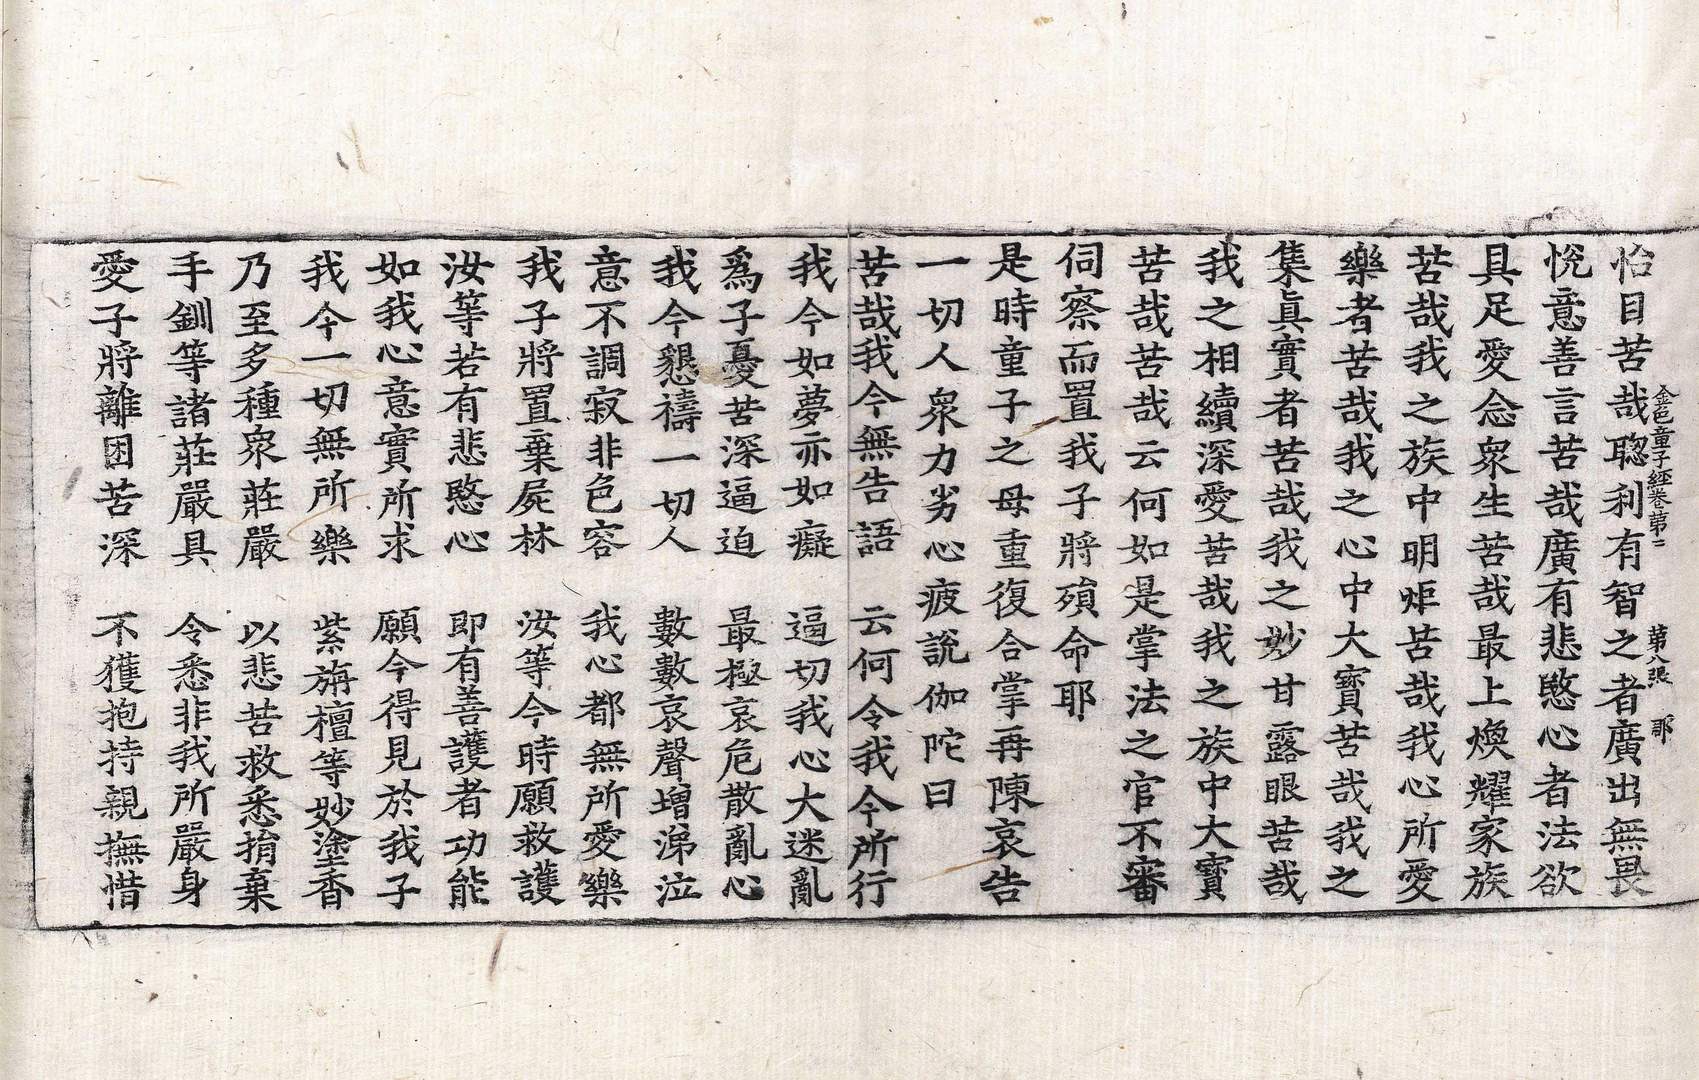 怡目苦哉聦利有智之者廣出無畏
金色童子經卷第二 第八張 耶
悅意善言苦哉廣有悲愍心者法欲
具足愛念衆生苦哉最上煥耀家族
苦哉我之族中明炬苦哉我心所愛
樂者苦哉我之心中大寶苦哉我之
集眞實者苦哉我之妙甘露眼苦哉
我之相續深愛苦哉我之族中大寶
苦哉苦哉云何如是掌法之官不審
伺察而置我子將殞命耶
是時童子之母重復合掌再陳哀告
一切人衆力劣心疲說伽陀曰
苦哉我今無告語 云何令我今所行
我今如夢亦如癡 逼切我心大迷亂
爲子憂苦深逼迫 最極哀危散亂心
我今懇禱一切人 數數哀聲增涕泣
意不調寂非色容 我心都無所愛樂
我子將置棄屍林 汝等今時願救護
汝等若有悲愍心 即有善護者功能
如我心意實所求 願今得見於我子
我今一切無所樂 紫旃檀等妙塗香
乃至多種衆莊嚴 以悲苦救悉捐棄
手釧等諸莊嚴具 令悉非我所嚴身
愛子將離困苦深 不獲抱持親撫惜